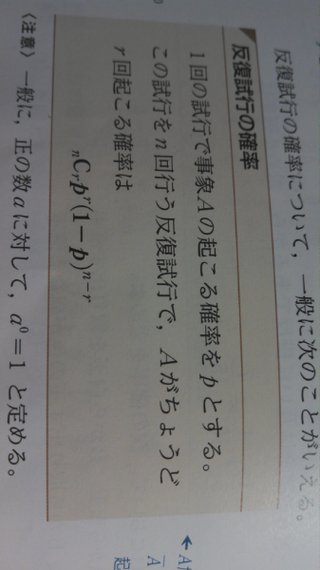 反復試行の確率について，一般に次のことがいえる。
反復試行の確率
1回の試行で事象Aの起こる確率をpとする。
この試行をn回行う反復試行で，Aがちょうど
r回起こる確率は
ₙCᵣpʳ(1−p)ⁿ⁻ʳ
〈注意〉一般に，正の数aに対して，a⁰＝1 と定める。
←A
A
起